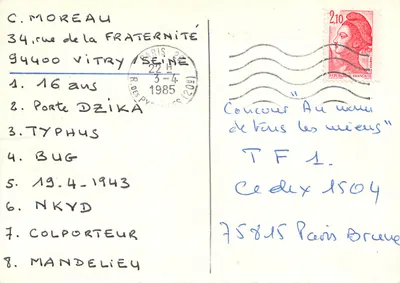 C. MOREAU
34, rue de la FRATERNITÉ
94400 VITRY / SEINE
1. 16 ans
2. Porte DZIKA
3. TYPHUS
4. BUG
5. 19.4-1943
6. NKYD
7. COLPORTEUR
8. MANDELIEU
PARIS
22 H
3-4
1985
2,10
"Concour Au nom
de tous les miens"
T F 1.
Cedex 1504
75815 Paris Brune